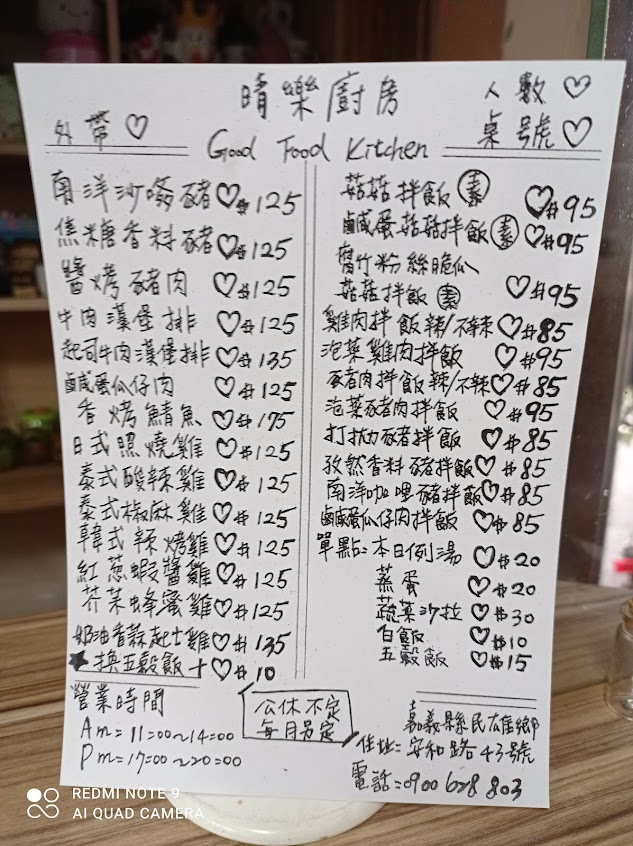 晴樂廚房
人數♡
外帶♡
桌號♡
Good Food Kitchen
南洋沙嗲豬♡$125
焦糖香料豬♡$125
醬烤豬肉♡$125
牛肉漢堡排♡$125
起司牛肉漢堡排♡$135
鹹蛋瓜仔肉♡$125
香烤鯖魚♡$175
日式照燒雞♡$125
泰式酸辣雞♡$125
泰式椒麻雞♡$125
韓式辣烤雞♡$125
紅蔥蝦醬雞♡$125
芥茉蜂蜜雞♡$125
奶油香蒜起士雞♡$135
★換五穀飯+♡$10
營業時間
Am=11:00~14:00
Pm=17:00~20:00
菇菇拌飯(素)♡$95
鹹蛋菇菇拌飯(素)♡$95
腐竹粉絲脆瓜
菇菇拌飯(素)♡$95
雞肉拌飯辣/不辣♡$85
泡菜雞肉拌飯♡$95
豬肉拌飯辣/不辣♡$85
泡菜豬肉拌飯♡$95
打拋豬拌飯♡$85
孜然香料豬拌飯♡$85
南洋咖哩豬拌飯♡$85
鹹蛋瓜仔肉拌飯♡$85
單點:本日例湯♡$20
蒸蛋♡$20
蔬菜沙拉♡$30
白飯♡$10
五穀飯♡$15
公休不定
每月另定
嘉義縣民雄鄉
住址:安和路43號
電話:0900 628 803
REDMI NOTE 9
AI QUAD CAMERA